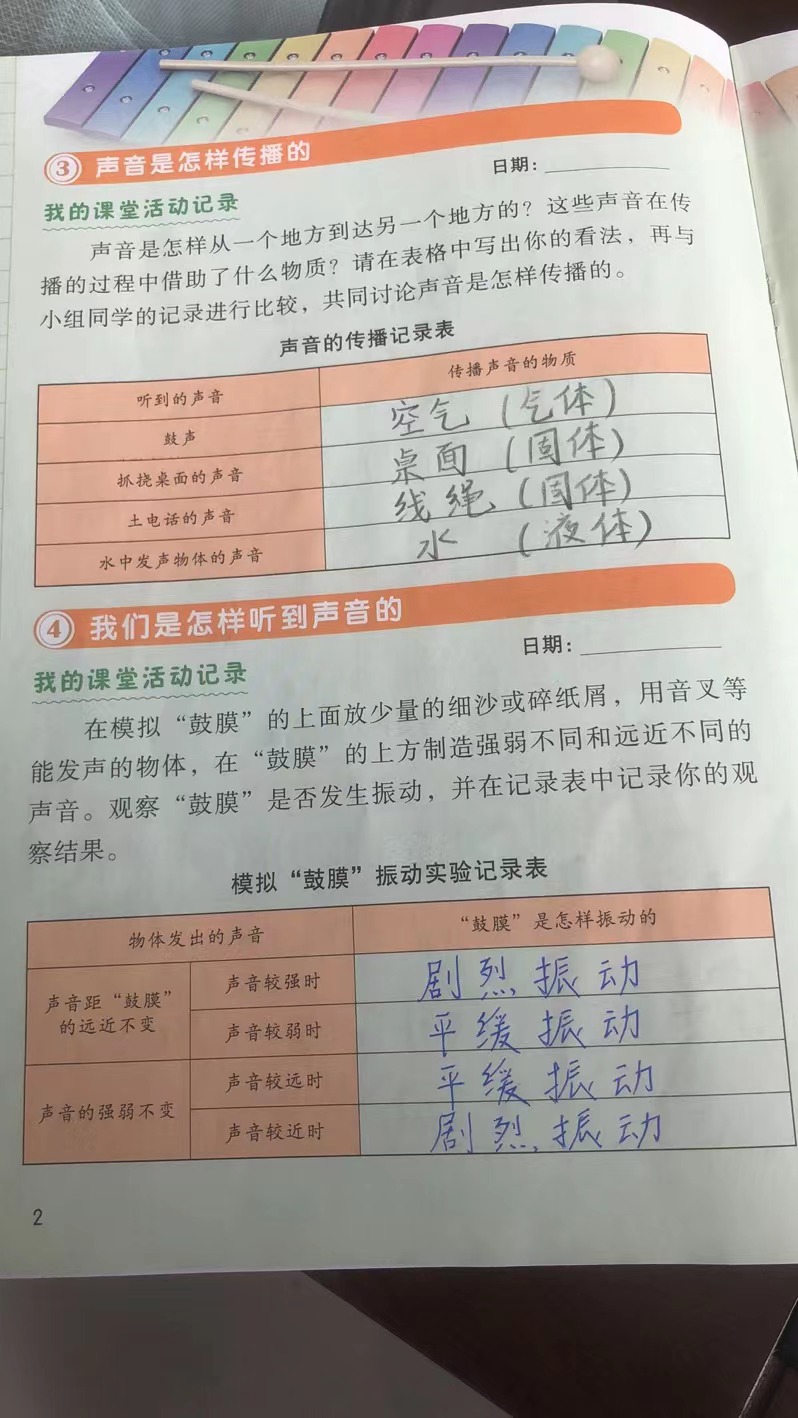 3 声音是怎样传播的
日期：
我的课堂活动记录
声音是怎样从一个地方到达另一个地方的？这些声音在传
播的过程中借助了什么物质？请在表格中写出你的看法，再与
小组同学的记录进行比较，共同讨论声音是怎样传播的。
声音的传播记录表
听到的声音 传播声音的物质
鼓声 空气（气体）
抓挠桌面的声音 桌面（固体）
土电话的声音 线绳（固体）
水中发声物体的声音 水（液体）
4 我们是怎样听到声音的
日期：
我的课堂活动记录
在模拟“鼓膜”的上面放少量的细沙或碎纸屑，用音叉等
能发声的物体，在“鼓膜”的上方制造强弱不同和远近不同的
声音。观察“鼓膜”是否发生振动，并在记录表中记录你的观
察结果。
模拟“鼓膜”振动实验记录表
物体发出的声音 “鼓膜”是怎样振动的
声音距“鼓膜”
的远近不变
声音较强时 剧烈振动
声音较弱时 平缓振动
声音的强弱不变
声音较远时 平缓振动
声音较近时 剧烈振动
2